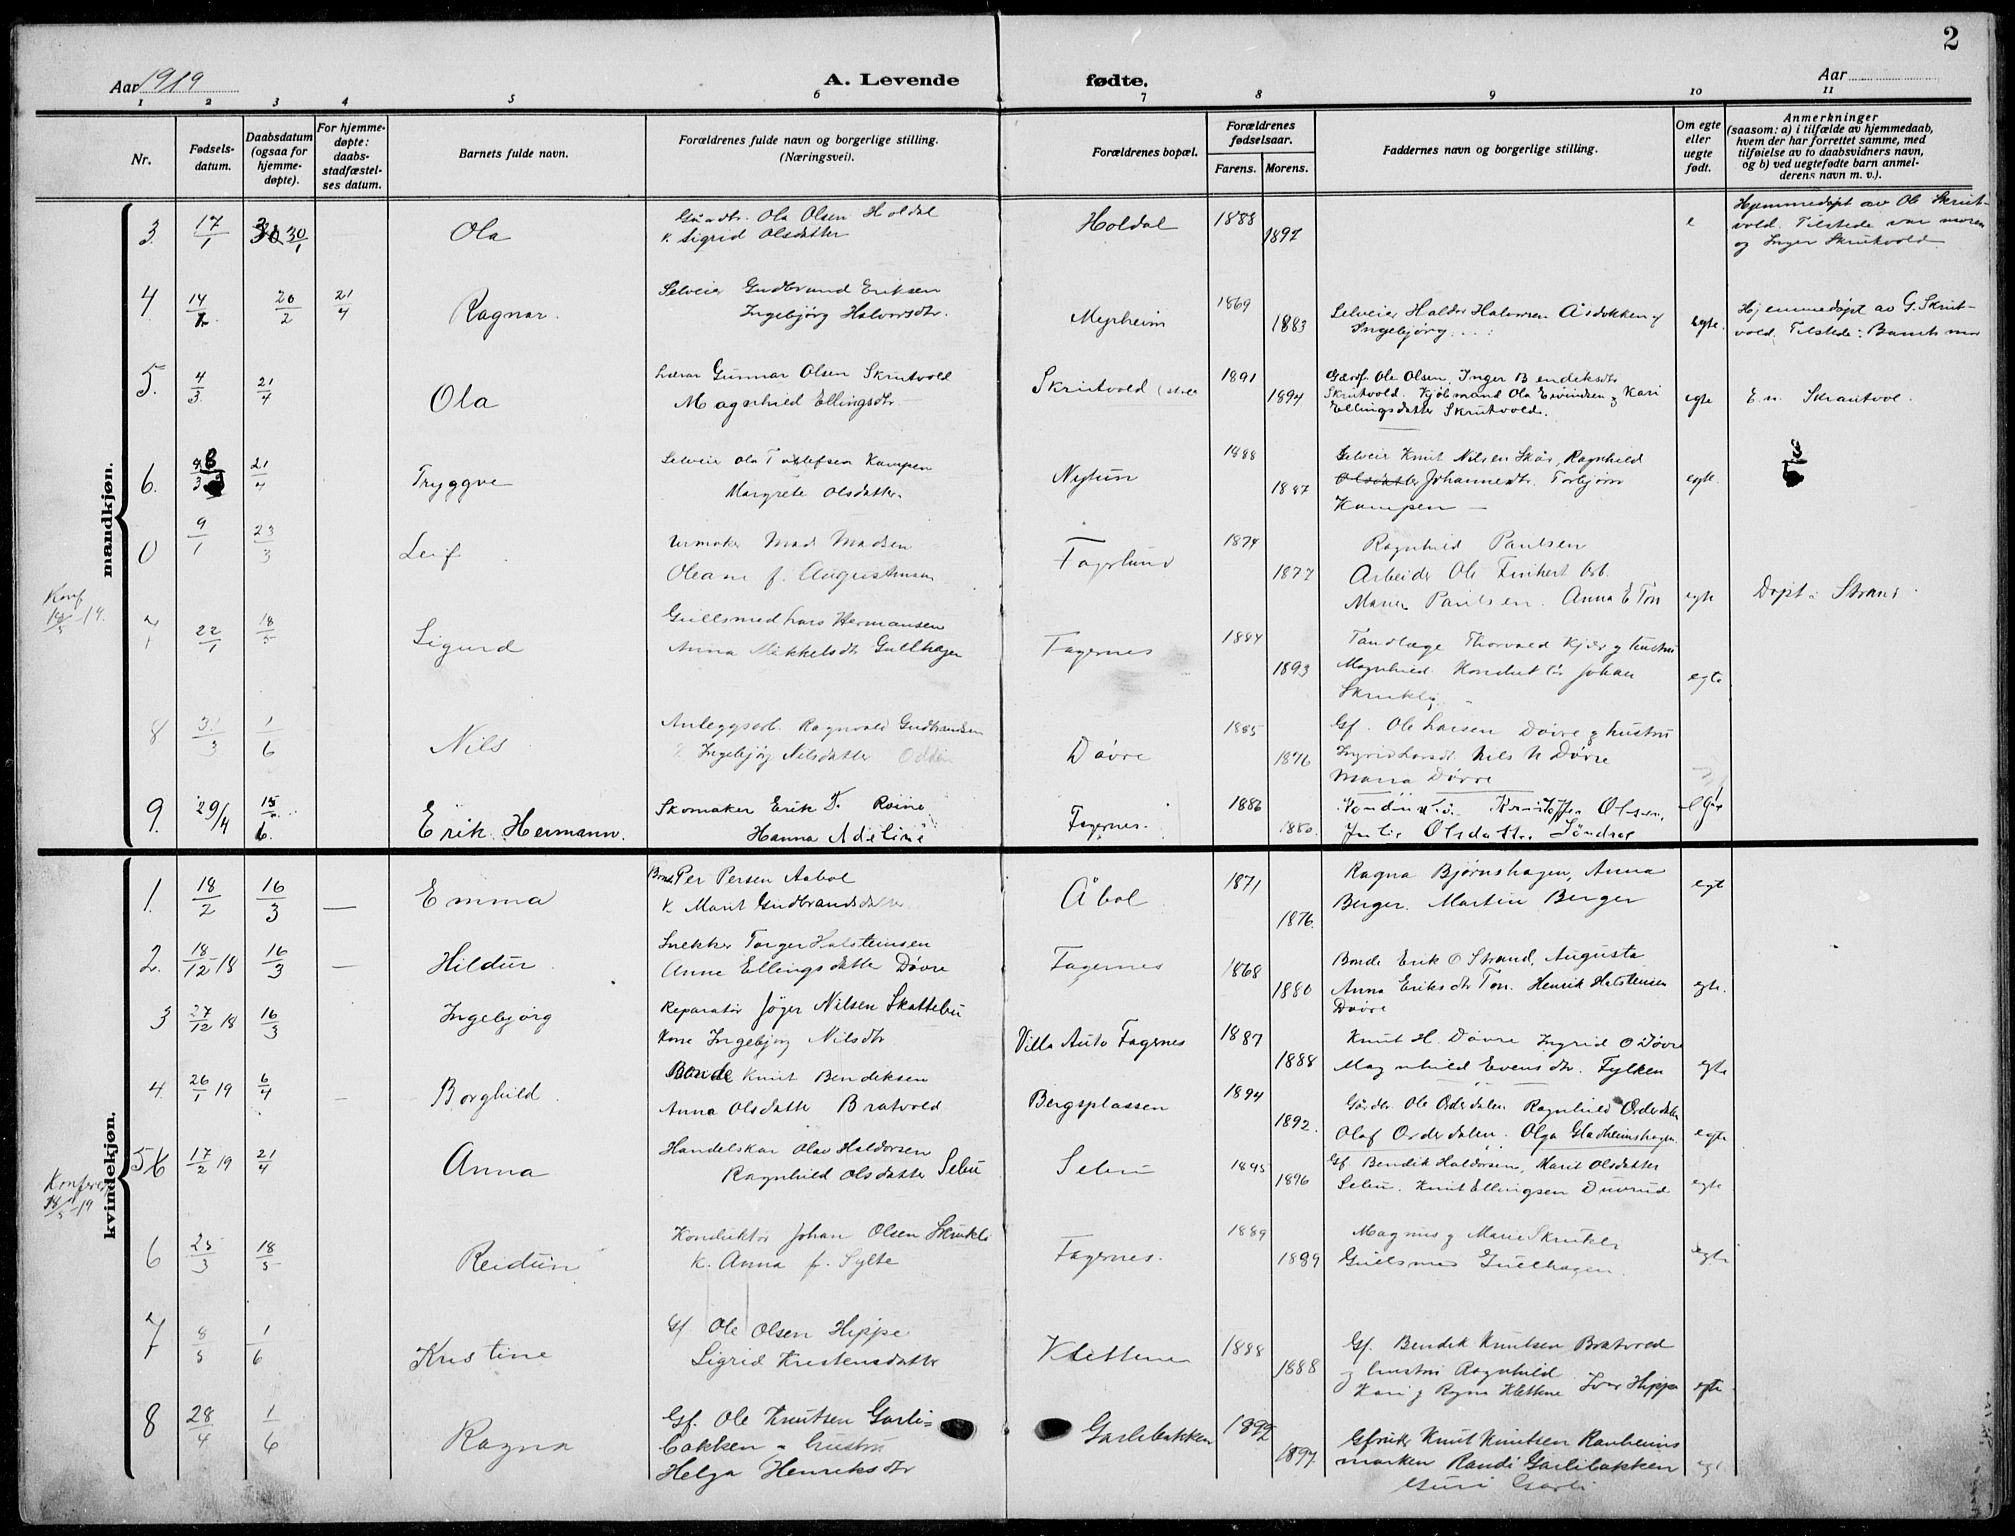 2
Aar 1919
A. Levende fødte.
Aar
1 2 3 4 5 6 7 8 9 10 11
Nr.
Fødsels-
datum.
Daabsdatum
(ogsaa for
hjemme-
døpte).
For hjemme-
døpte:
daabs-
stadfæstel-
ses datum.
Barnets fulde navn.
Forældrenes fulde navn og borgerlige stilling.
(Næringsvei).
Forældrenes bopæl.
Forældrenes
fødselsaar.
Farens. Morens.
Faddernes navn og borgerlige stilling.
Om egte
eller
uegte
født.
Anmerkninger
(saasom: a) i tilfælde av hjemmedaab,
hvem der har forrettet samme, med
tilføielse av to daabsvidners navn,
og b) ved uegtefødte barn anmel-
derens navn m. v.).
mandkjøn.
3. 17/1 30/1 Ola
Ola Olsen Holdal
k. Sigrid Olsdatter
Holdal 1888 1897 e
Hjemmedøpt av Ol. Skrut-
vold. Tilstede var moren
og Inger Skrutvold
4 14/2 20/2 21/4 Ragnar.
Selveier Gudbrand Eriksen
Ingebjørg Halvorsdtr.
1869 1883
Selveier Haldor Halvorsen
Ingebjørg
egte.
Hjemmedøpt av G. Skrut-
vold. Tilstede: Barnets mor
5. 4/3 21/4 Ola
Lærar Gunnar Olsen Skrutvold
Magnhild Ellingsdtr.
Skrutvold 1891 1894
Ole Olsen, Inger Bendiksdtr
Skrutvold. Kjøbmand Ola Eivindsen og Kari
Ellingsdatter Skrutvold.
egte
6. 21/4 Tryggve
Selveier Ola Kampen
Margrete Olsdatter.
Nytun 1888 1887
Selveier Knut Nilsen Skår, Ragnhild
Olsdatter Johannesdtr. Torbjørn
Kampen
egte.
0 9/1 23/3 Leif
Urmaker Mads Madsen
Oleane f. Augustinsen
Fagerlund 1874 1877
Ragnhild Paulsen
Arbeider Ole
Paulsen. Anna E Ton
egte
Døpt i Strand
Konf
18/5-19.
7 22/1 18/5 Sigurd
Gullsmed Lars Hermansen
Anna Mikkelsdtr Gullhagen
Fagernes 1884 1893
Tandlæge Thorvald Kjær og hustru
Magnhild Konduktør Johan
Skrukli
egte
8 31/3 1/6 Nils
Anleggsarb. Ragnvald Gudbrandsen
Ingebjørg Nilsdatter
Døvre 1885 1876
Gf. Ole Larsen Døvre og hustru
Ingrid Larsdt. Nils N Døvre
Maria Døvre
9. 29/4 15/6. Erik Hermann.
Skomaker Erik
Hanna Adeline
Fagernes. 1886 1880.
Konduktør Kristoffer Olsen,
Julie Olsdatter Søndrol
egte
kvindekjøn.
1. 18/2 16/3 — Emma
Bonde Per Persen Aabol
K. Marit Gudbrandsdatter
Åbol 1871 1876.
Ragna Bjørnshagen, Anna
Berger. Martin Berger
egt
2. 18/12 18 16/3 — Hildur
Snekker Torger Halsteinsen
Anne Ellingsdatter Døvre
Fagernes 1868 1880
Bonde Erik O Strand, Augusta
Anna Eriksdtr Ton. Henrik Halsteinsen
Døvre
egte.
3 27/12 18 16/3 Ingebjørg
Reparatør Jøger Nilsen Skattebu
Kone Ingebjørg Nilsdtr
Villa Auto Fagernes 1887 1888
Knut H. Døvre Ingrid O Døvre
Magnhild Evensdtr. Fylken
egte
4. 26/1 19 6/4 - Borghild.
Bonde Knut Bendiksen
Anna Olsdatter Bratvold
Bergsplassen 1894 1892.
Gårdbr. Ole Orderdalen Ragnhild Orderdalen
Olaf Orderdalen. Olga Gladheimshagen.
egte
5 17/2 19 21/4 Anna
Handelskar Olav Haldorsen
Ragnhild Olsdatter Sebu
Sebu 1895 1896
Gf Bendik Haldorsen, Marit Olsdatter
Sebu. Knut Ellingsen Duvrud
egte
18/5-19
6 25/3 18/5 Reidun
Konduktør Johan Olsen Skrukli
K. Anna f. Sylte
Fagernes. 1889 1889
Magnus og Marie Skrukli
Gullsmed Gullhagen.
egte
7 8/5 1/6 Kristine
Gf Ole Olsen Hippe
Sigrid Kristensdatter
Klettene 1888 1888
Gf. Bendik Knutsen Bratvold
og hustru Ragnhild
Kari og Ragna Klettene Ivar Hippe
egte
8 28/4 1/6 Ragna
Gf. Ole Knutsen Garli=
bakken og hustru
Helga Henriksdtr
Garlibakken 1892 1897
Knut Knutsen Ranheims
marken Randi Garlibakken
Guri Garli
egt